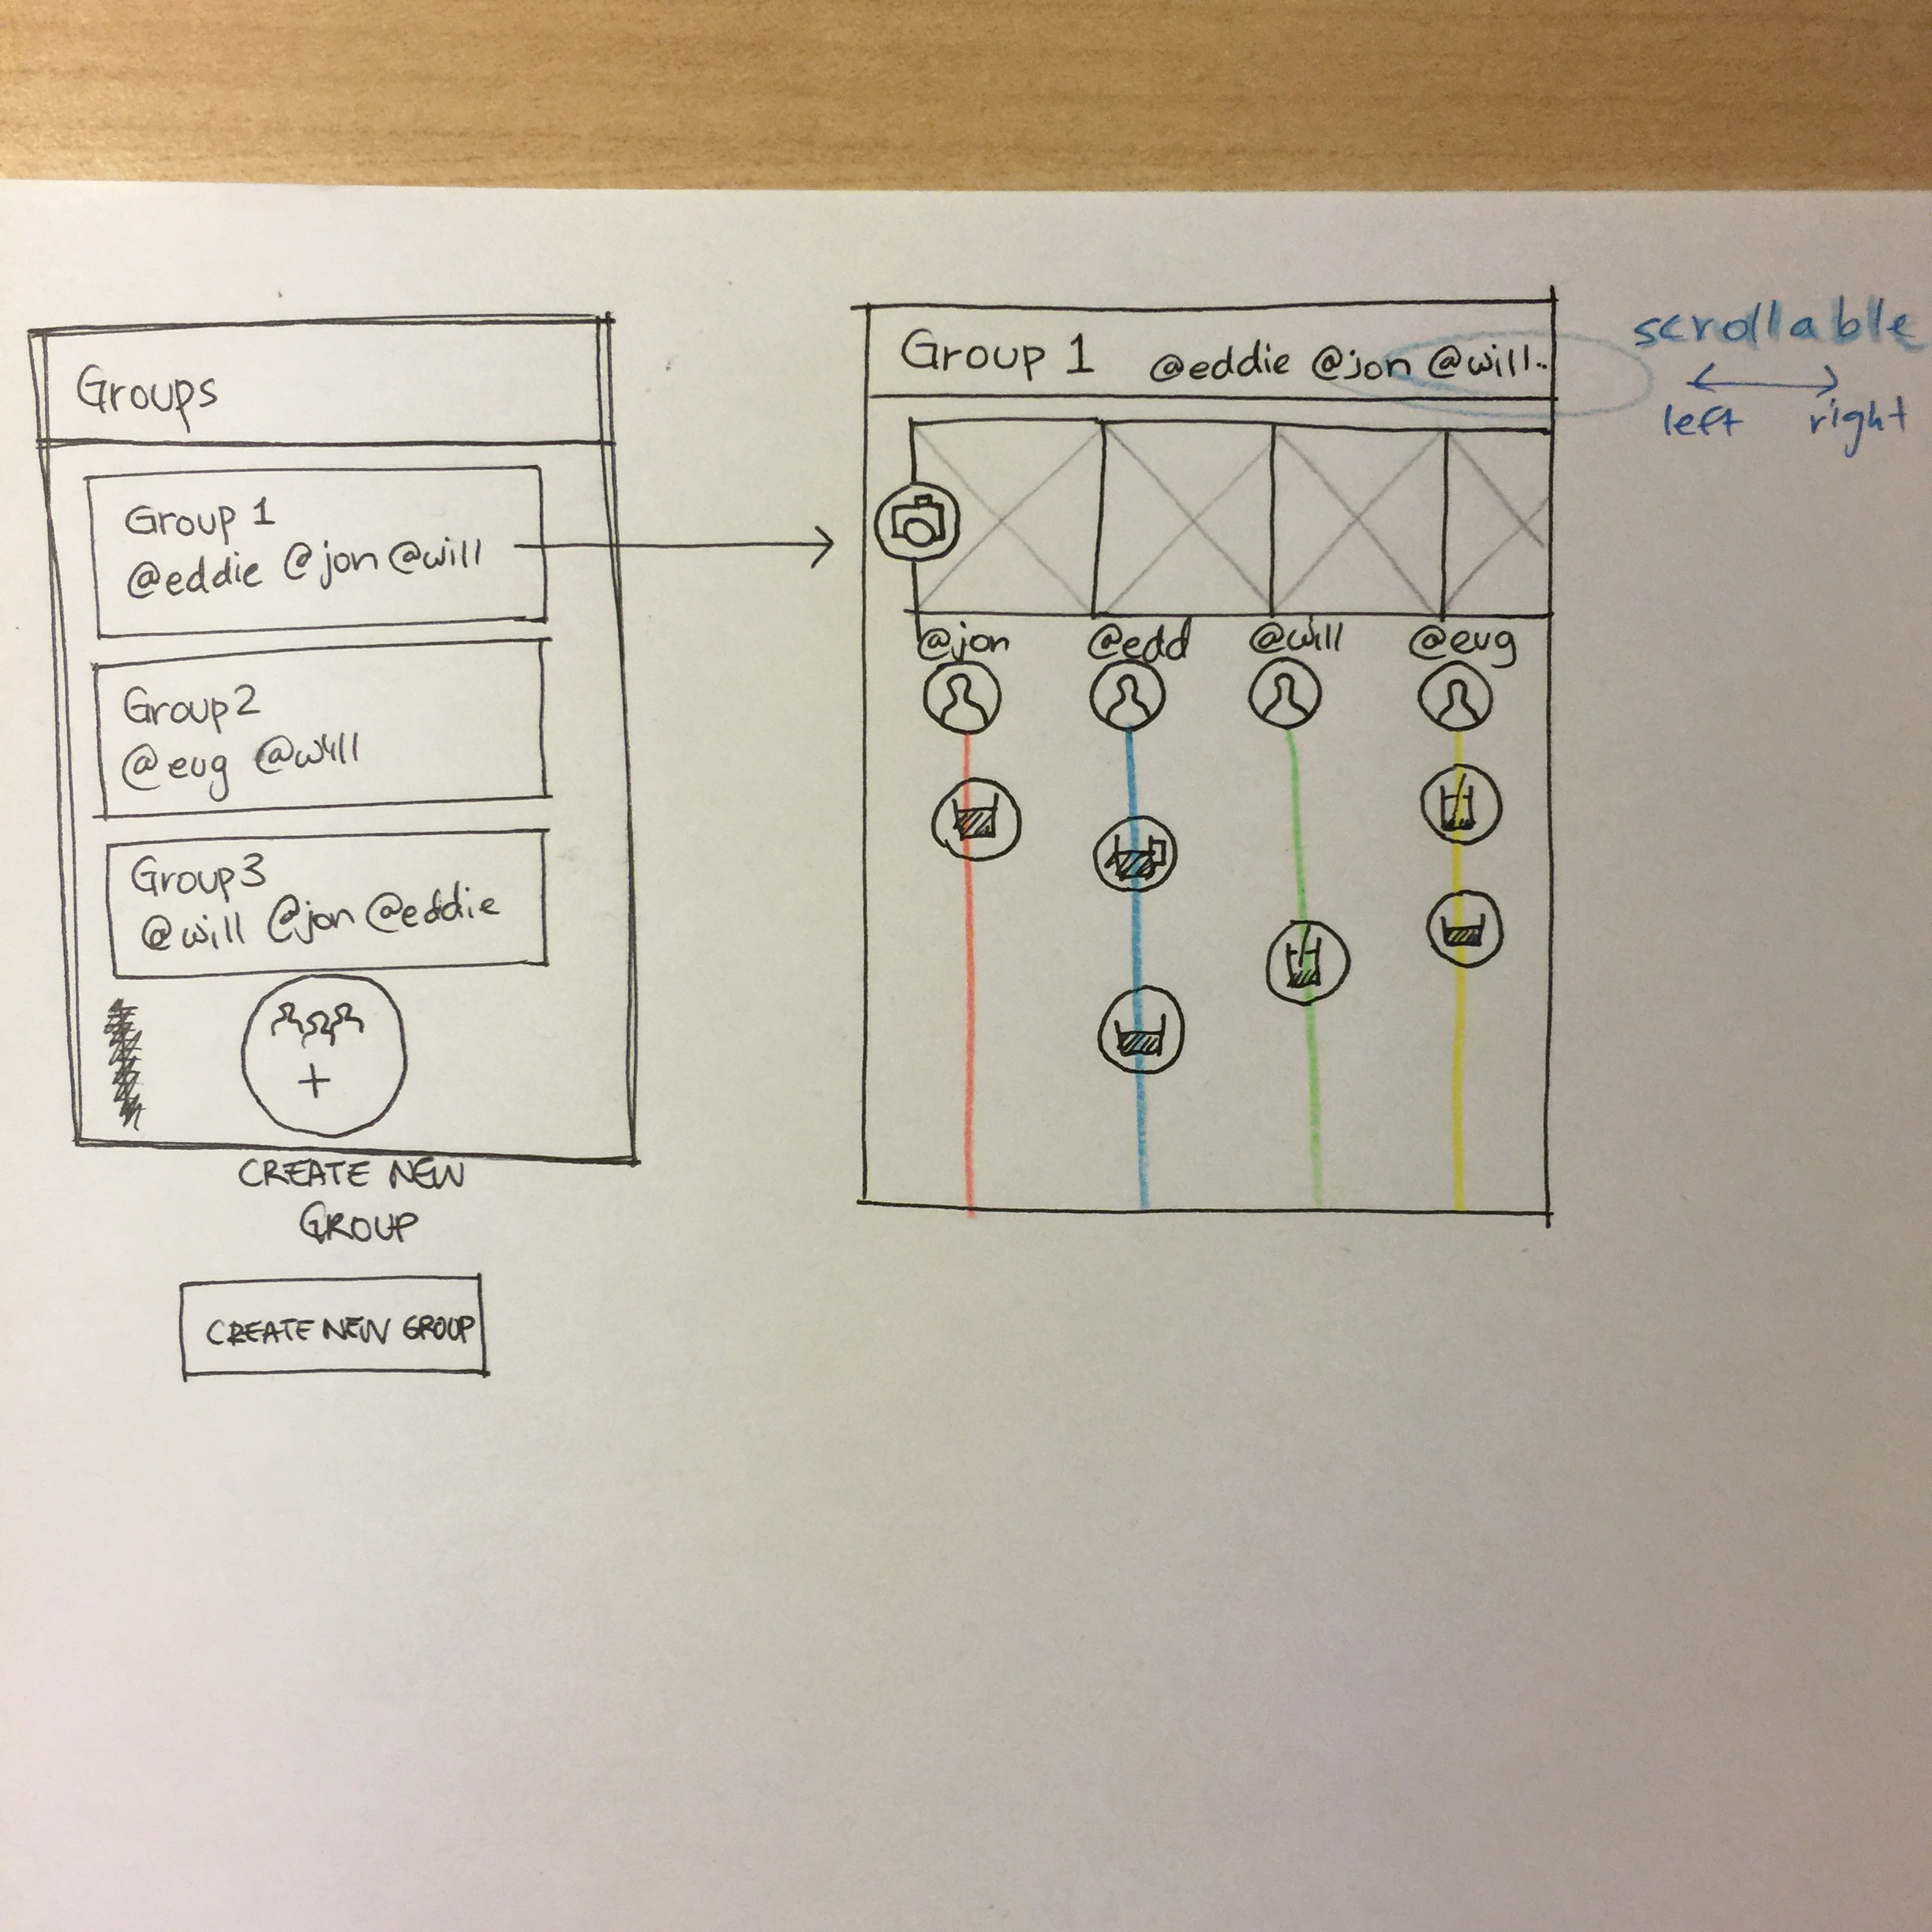 Groups
Group 1
@eddie @jon @will
Group 2
@eug @will
Group 3
@will @jon @eddie
+
CREATE NEW
GROUP
CREATE NEW GROUP
Group 1 @eddie @jon @will..
@jon @edd @will @eug
scrollable
left right